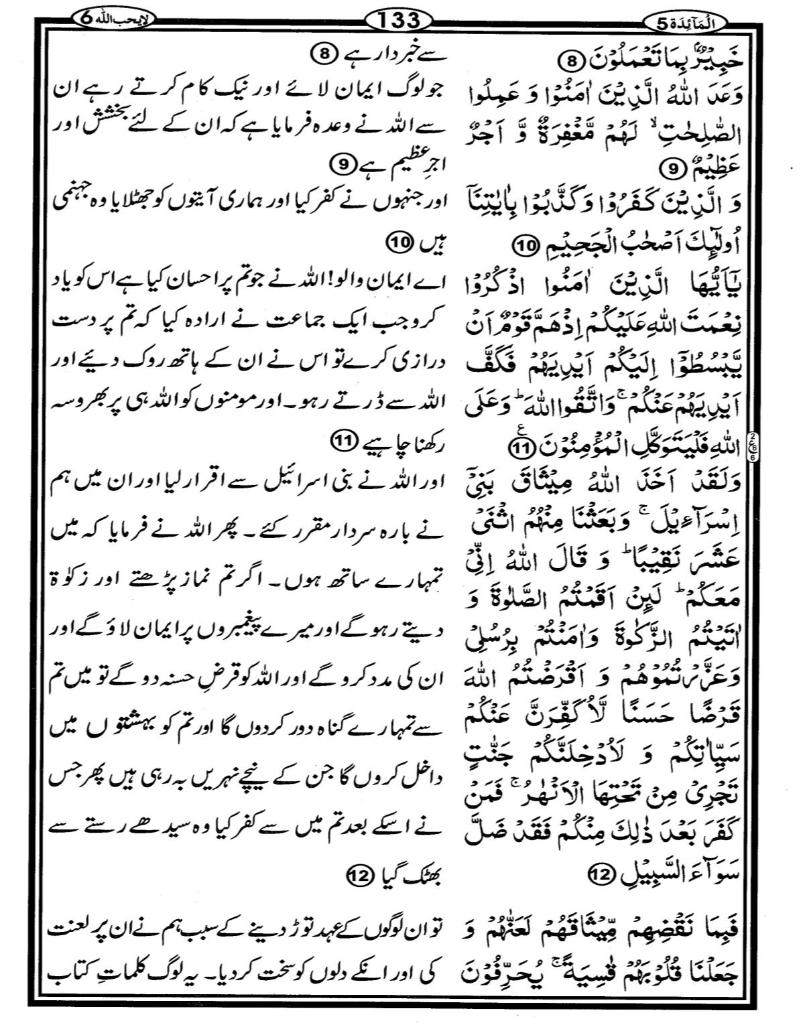 اَلْمَآئِدَة 5
133
لایحب اللہ 6
خَبِيْرٌۢ بِمَا تَعْمَلُوْنَ ⑧
وَعَدَ اللّٰهُ الَّذِيْنَ اٰمَنُوْا وَ عَمِلُوا
الصّٰلِحٰتِ ۙ لَهُمْ مَّغْفِرَةٌ وَّ اَجْرٌ
عَظِيْمٌ ⑨
وَ الَّذِيْنَ كَفَرُوْا وَ كَذَّبُوْا بِاٰيٰتِنَاۤ
اُولٰٓئِكَ اَصْحٰبُ الْجَحِيْمِ ⑩
يٰۤاَيُّهَا الَّذِيْنَ اٰمَنُوا اذْكُرُوْا
نِعْمَتَ اللّٰهِ عَلَيْكُمْ اِذْ هَمَّ قَوْمٌ اَنْ
يَّبْسُطُوْۤا اِلَيْكُمْ اَيْدِيَهُمْ فَكَفَّ
اَيْدِيَهُمْ عَنْكُمْ ۚ وَاتَّقُوا اللّٰهَ ؕ وَعَلَى
اللّٰهِ فَلْيَتَوَكَّلِ الْمُؤْمِنُوْنَ ⑪ ع
وَلَقَدْ اَخَذَ اللّٰهُ مِيْثَاقَ بَنِيْۤ
اِسْرَآءِيْلَ ۚ وَبَعَثْنَا مِنْهُمُ اثْنَيْ
عَشَرَ نَقِيْبًا ؕ وَ قَالَ اللّٰهُ اِنِّيْ
مَعَكُمْ ؕ لَىِٕنْ اَقَمْتُمُ الصَّلٰوةَ وَ
اٰتَيْتُمُ الزَّكٰوةَ وَاٰمَنْتُمْ بِرُسُلِيْ
وَعَزَّرْتُمُوْهُمْ وَ اَقْرَضْتُمُ اللّٰهَ
قَرْضًا حَسَنًا لَّاُكَفِّرَنَّ عَنْكُمْ
سَيِّاٰتِكُمْ وَ لَاُدْخِلَنَّكُمْ جَنّٰتٍ
تَجْرِيْ مِنْ تَحْتِهَا الْاَنْهٰرُ ۚ فَمَنْ
كَفَرَ بَعْدَ ذٰلِكَ مِنْكُمْ فَقَدْ ضَلَّ
سَوَآءَ السَّبِيْلِ ⑫
فَبِمَا نَقْضِهِمْ مِّيْثَاقَهُمْ لَعَنّٰهُمْ وَ
جَعَلْنَا قُلُوْبَهُمْ قٰسِيَةً ۚ يُحَرِّفُوْنَ
سے خبردار ہے ⑧
جو لوگ ایمان لائے اور نیک کام کرتے رہے ان
سے اللہ نے وعدہ فرمایا ہے کہ ان کے لئے بخشش اور
اجر عظیم ہے ⑨
اور جنہوں نے کفر کیا اور ہماری آیتوں کو جھٹلایا وہ جہنمی
ہیں ⑩
اے ایمان والو! اللہ نے جو تم پر احسان کیا ہے اس کو یاد
کرو جب ایک جماعت نے ارادہ کیا کہ تم پر دست
درازی کرے تو اس نے ان کے ہاتھ روک دیئے اور
اللہ سے ڈرتے رہو۔ اور مومنوں کو اللہ ہی پر بھروسہ
رکھنا چاہیے ⑪
اور اللہ نے بنی اسرائیل سے اقرار لیا اور ان میں ہم
نے بارہ سردار مقرر کئے۔ پھر اللہ نے فرمایا کہ میں
تمہارے ساتھ ہوں۔ اگر تم نماز پڑھتے اور زکوٰۃ
دیتے رہو گے اور میرے پیغمبروں پر ایمان لاؤ گے اور
ان کی مدد کرو گے اور اللہ کو قرضِ حسنہ دو گے تو میں تم
سے تمہارے گناہ دور کردوں گا اور تم کو بہشتوں میں
داخل کروں گا جن کے نیچے نہریں بہ رہی ہیں پھر جس
نے اسکے بعد تم میں سے کفر کیا وہ سیدھے رستے سے
بھٹک گیا ⑫
تو ان لوگوں کے عہد توڑ دینے کے سبب ہم نے ان پر لعنت
کی اور انکے دلوں کو سخت کردیا۔ یہ لوگ کلماتِ کتاب